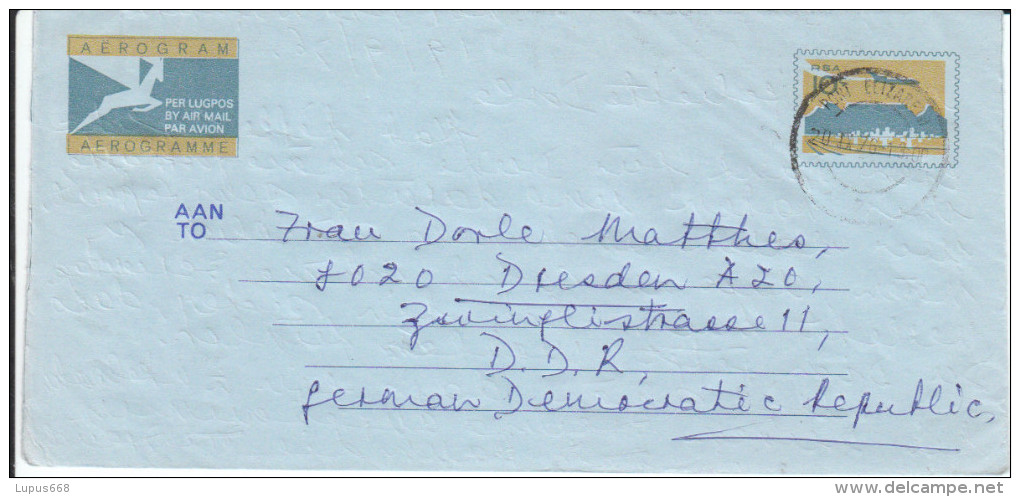 AËROGRAM
PER LUGPOS
BY AIR MAIL
PAR AVION
AEROGRAMME
RSA
10c
PORT ELIZABETH
AAN
TO
Frau Dorle Matthes,
8020 Dresden A20,
Zwinglistrasse 11,
D.D.R,
German Democratic Republic.
Lupus668